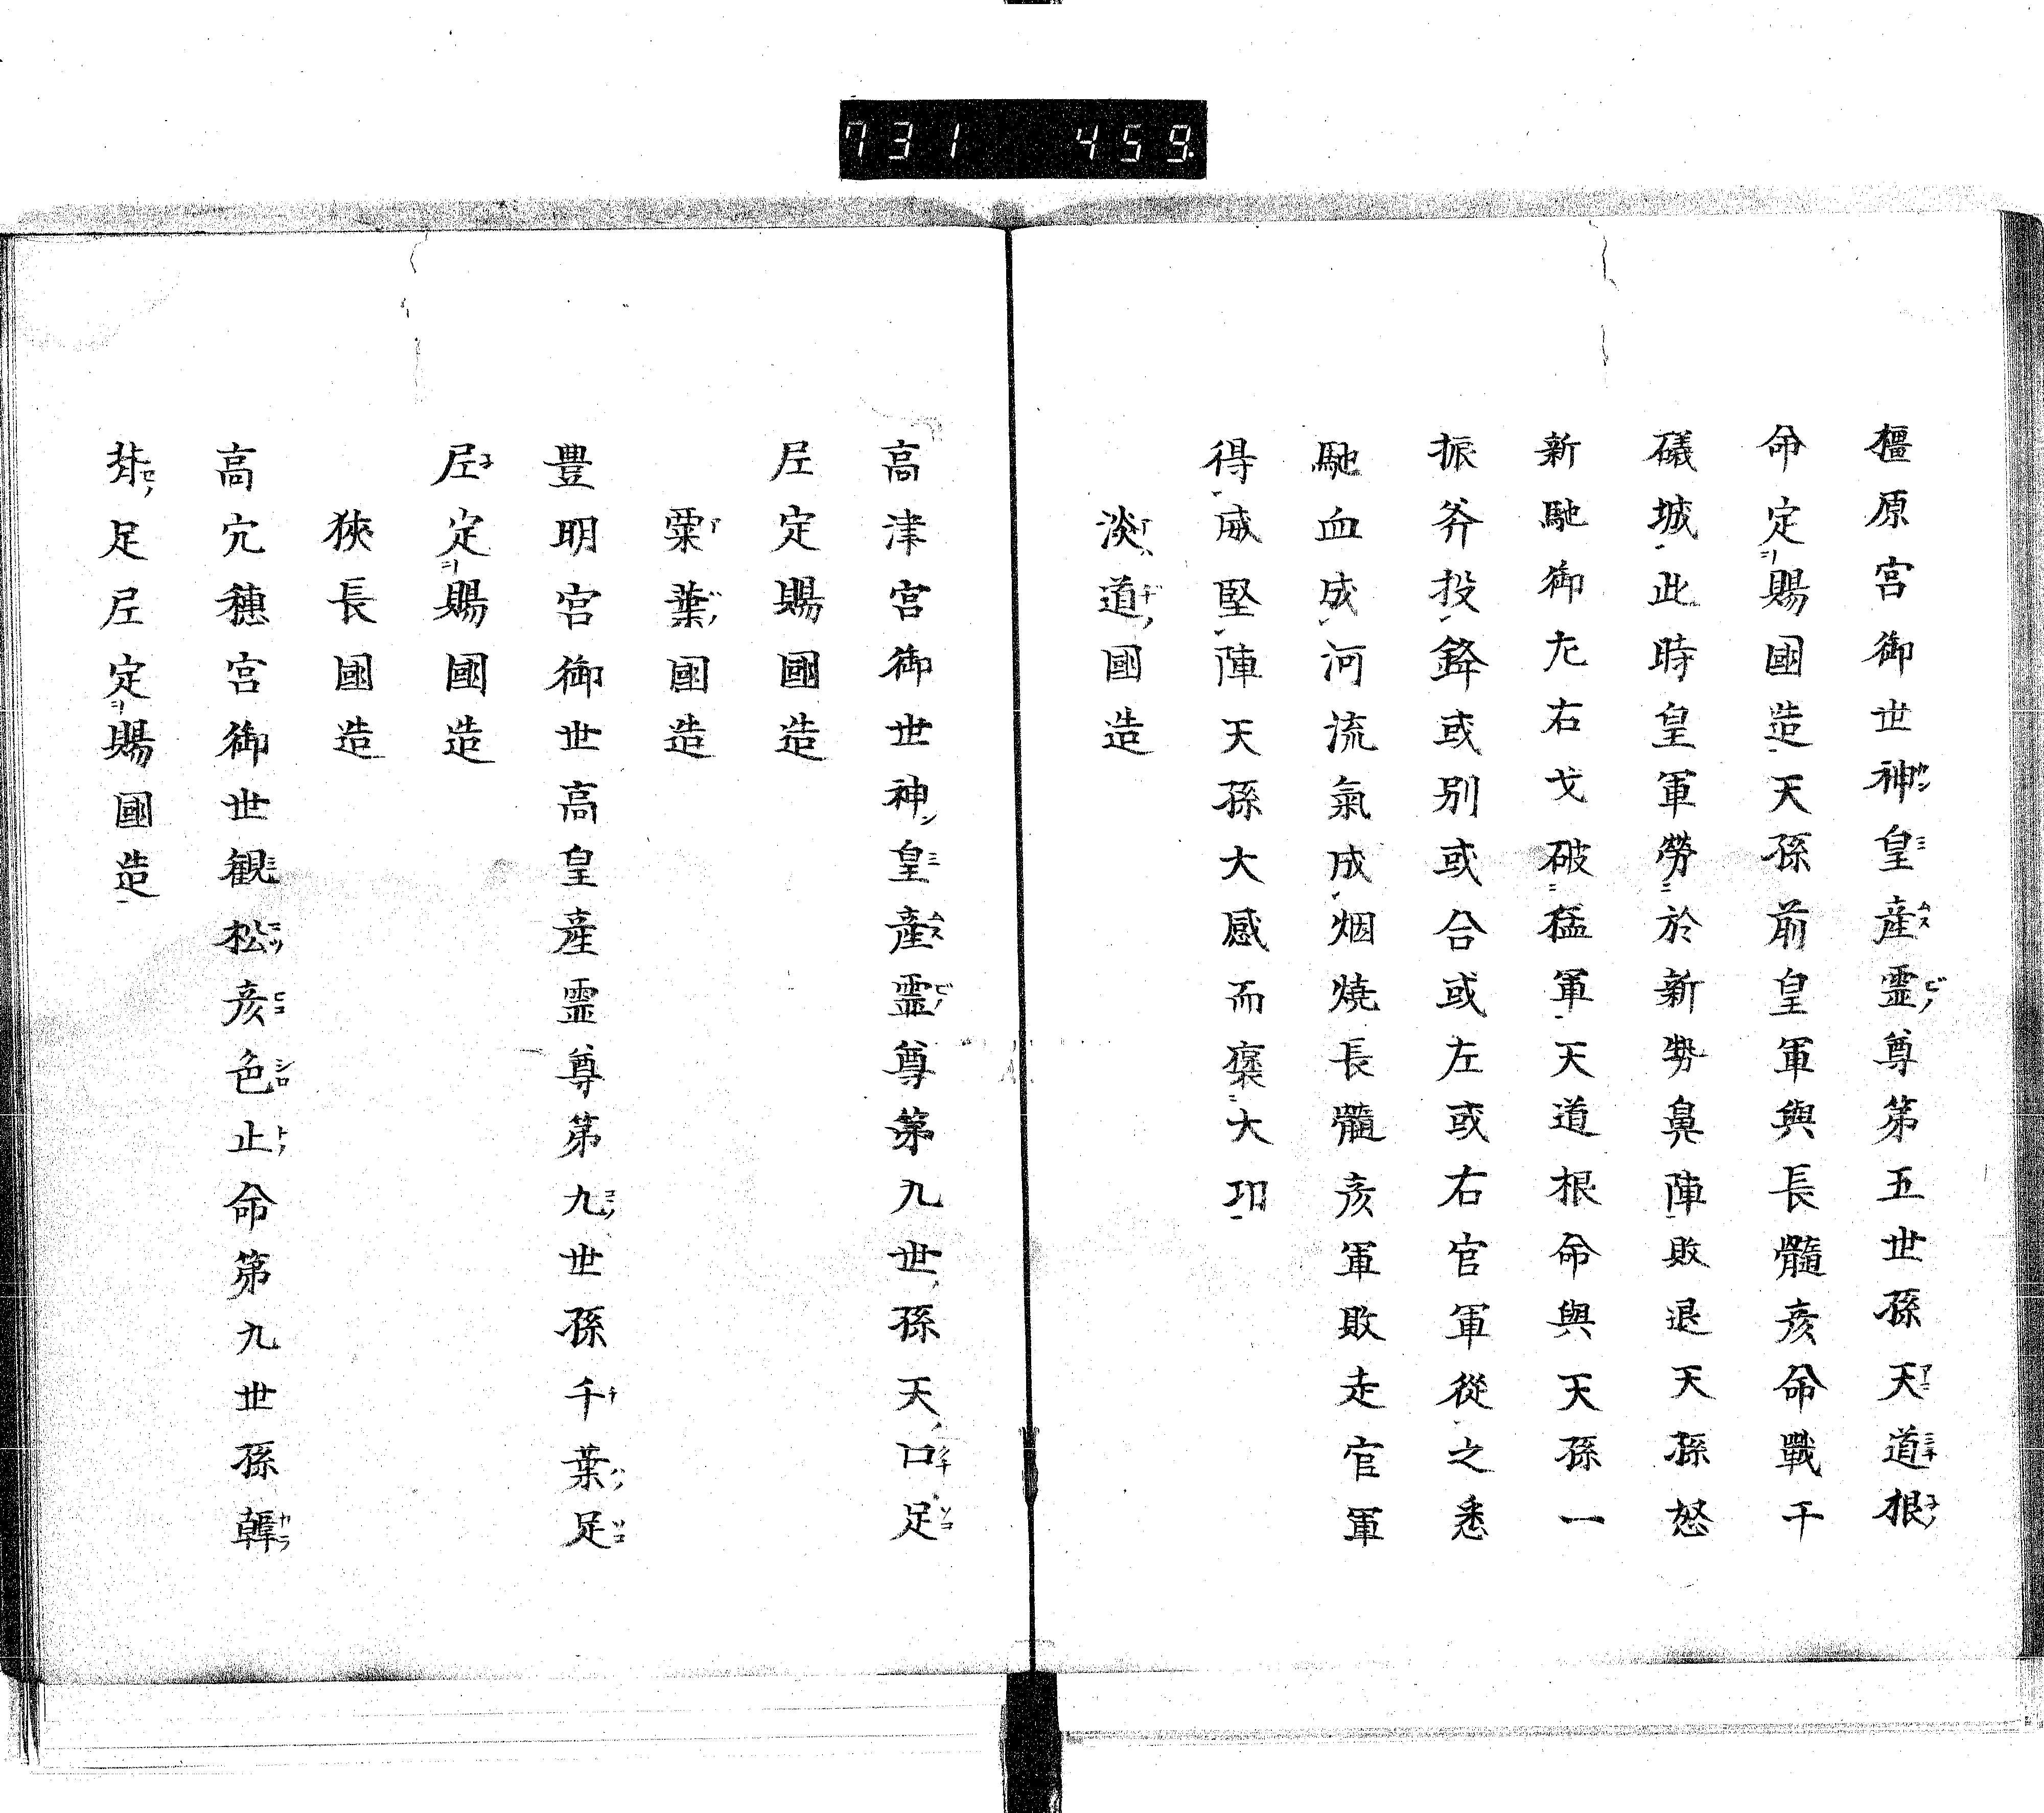 731 459
橿原宮御世神皇産霊尊第五世孫天道根
命定賜國造天孫前皇軍與長髓彦命戰于
礒城此時皇軍勞於新勢鼻陣敗退天孫怒
新馳御左右戈破猛軍天道根命與天孫一
振斧投鋒或別或合或左或右官軍從之悉
馳血成河流氣成烟燒長髓彦軍敗走官軍
得威堅陣天孫大感而褒大功
淡道國造
高津宮御世神皇産霊尊第九世孫天口足
尼定賜國造
粟葉國造
豊明宮御世高皇産霊尊第九世孫千葉足
尼定賜國造
狹長國造
高穴穗宮御世観松彦色止命第九世孫韓
背足尼定賜國造